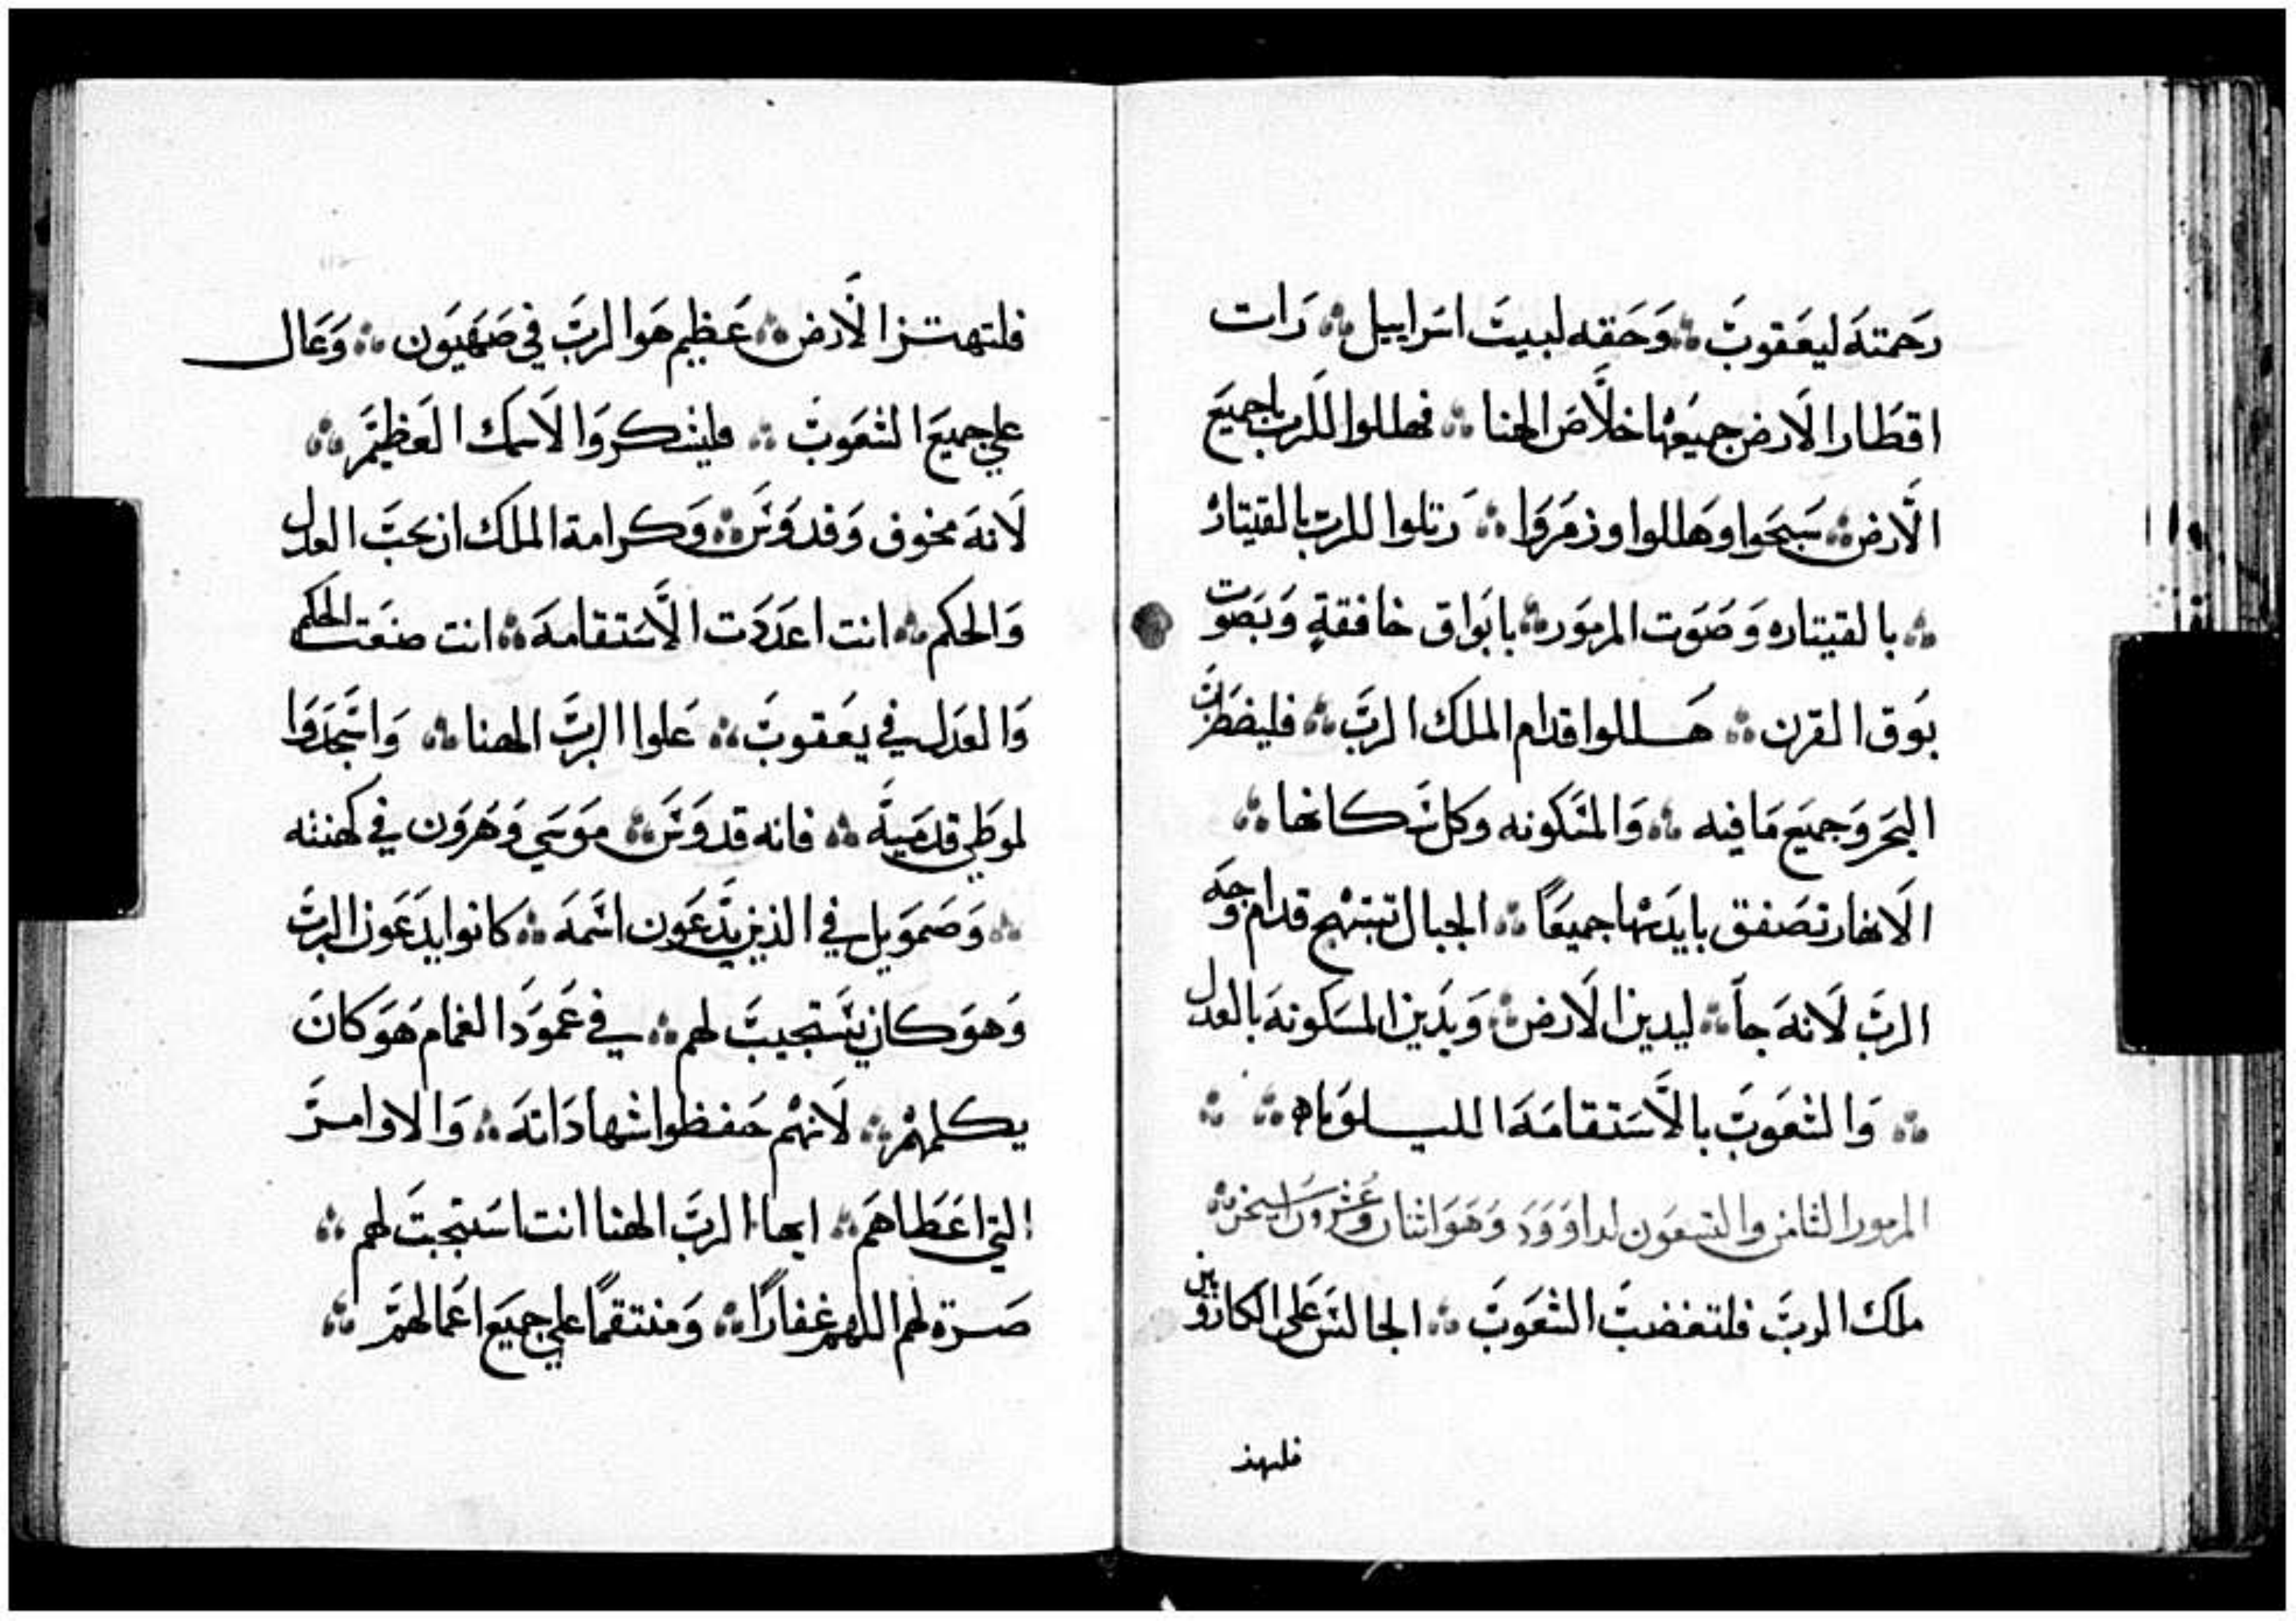 رَحمَته ليعَقوبَ ؞ وَحَقه لبيتَ اسَراييل ؞ رَات
اقطَار الَارض جميَعها خلَّاصَ الهنا ؞ فهللوا للَرب يا جميَع
الَّارض ؞ سَبحَوا وهَللوا وزمَروَا ؞ رَتلوا للربَ بالقيتار
؞ بالقيتاره وَصَوَت المزموَر ؞ بابَواق خافقةٍ وَبصَوت
بوَق القرن ؞ هَللوا قدام الملَك الربَ ؞ فليضطرَبَ
البحَر وَجميَع مَا فيه ؞ وَالمسَكونه وَكل سَكانها ؞
الَانهار تصَفق بايدَيها جميعَاً ؞ الجبال تبتهج قدام وجَه
الربَ لَانهَ جاَ ؞ ليدين الَارض ؞ وَيدَين المسَكونهَ بالعدل
؞ وَالشعَوبَ بالَّاسَتقامَهَ الليلوَياه ؞ ؞
المزمور الثامن والتسعَون لداوَوَدَ وَهَوَ اثنان وعُشَروَن اسَيخن ؞
ملَك الربَ فلتغضبَ الشعَوبَ ؞ الجالسَ علَى الكاروَبين
فلتهتز
فلتهتز الَّارض ؞ عَظيم هَوا الربَّ في صَهيَون ؞ وَعَال
علي جميَع الشعَوبَ ؞ فليشكروَا لَاسَمك العَظيمَ ؞
لَانهَ مخوف وَقدوَسَ ؞ وَكرامة الملَك ان يحبَ العدل
وَالحكم ؞ انت اعدَدَت الَّاسَتقامهَ ؞ انت صنعَت الحكم
وَالعدَل في يعَقوبَ ؞ عَلوا الربَّ الهنا ؞ وَاسَجدَوَا
لموطَي قدمَيهَ ؞ فانه قدوَسَ ؞ موَسَي وَهَروَن في كهنته
؞ وَصَموَيل في الذين يدَعَون اسَمهَ ؞ كانوا يدَعَون الربَّ
وَهوَ كان يسَتجيبَ لهم ؞ في عَموَدَ الغمام هَوَ كانَ
يكلمهَم ؞ لَانهَم حَفظوا شهادَاتهَ ؞ وَالاوامرَ
التي اعَطَاهمَ ؞ ايها الربَّ الهنا انت اسَتجبتَ لهم ؞
صَرت لهم اللهم غفارَاً ؞ وَمنتقماً علي جميَع اعَمالهمَ ؞